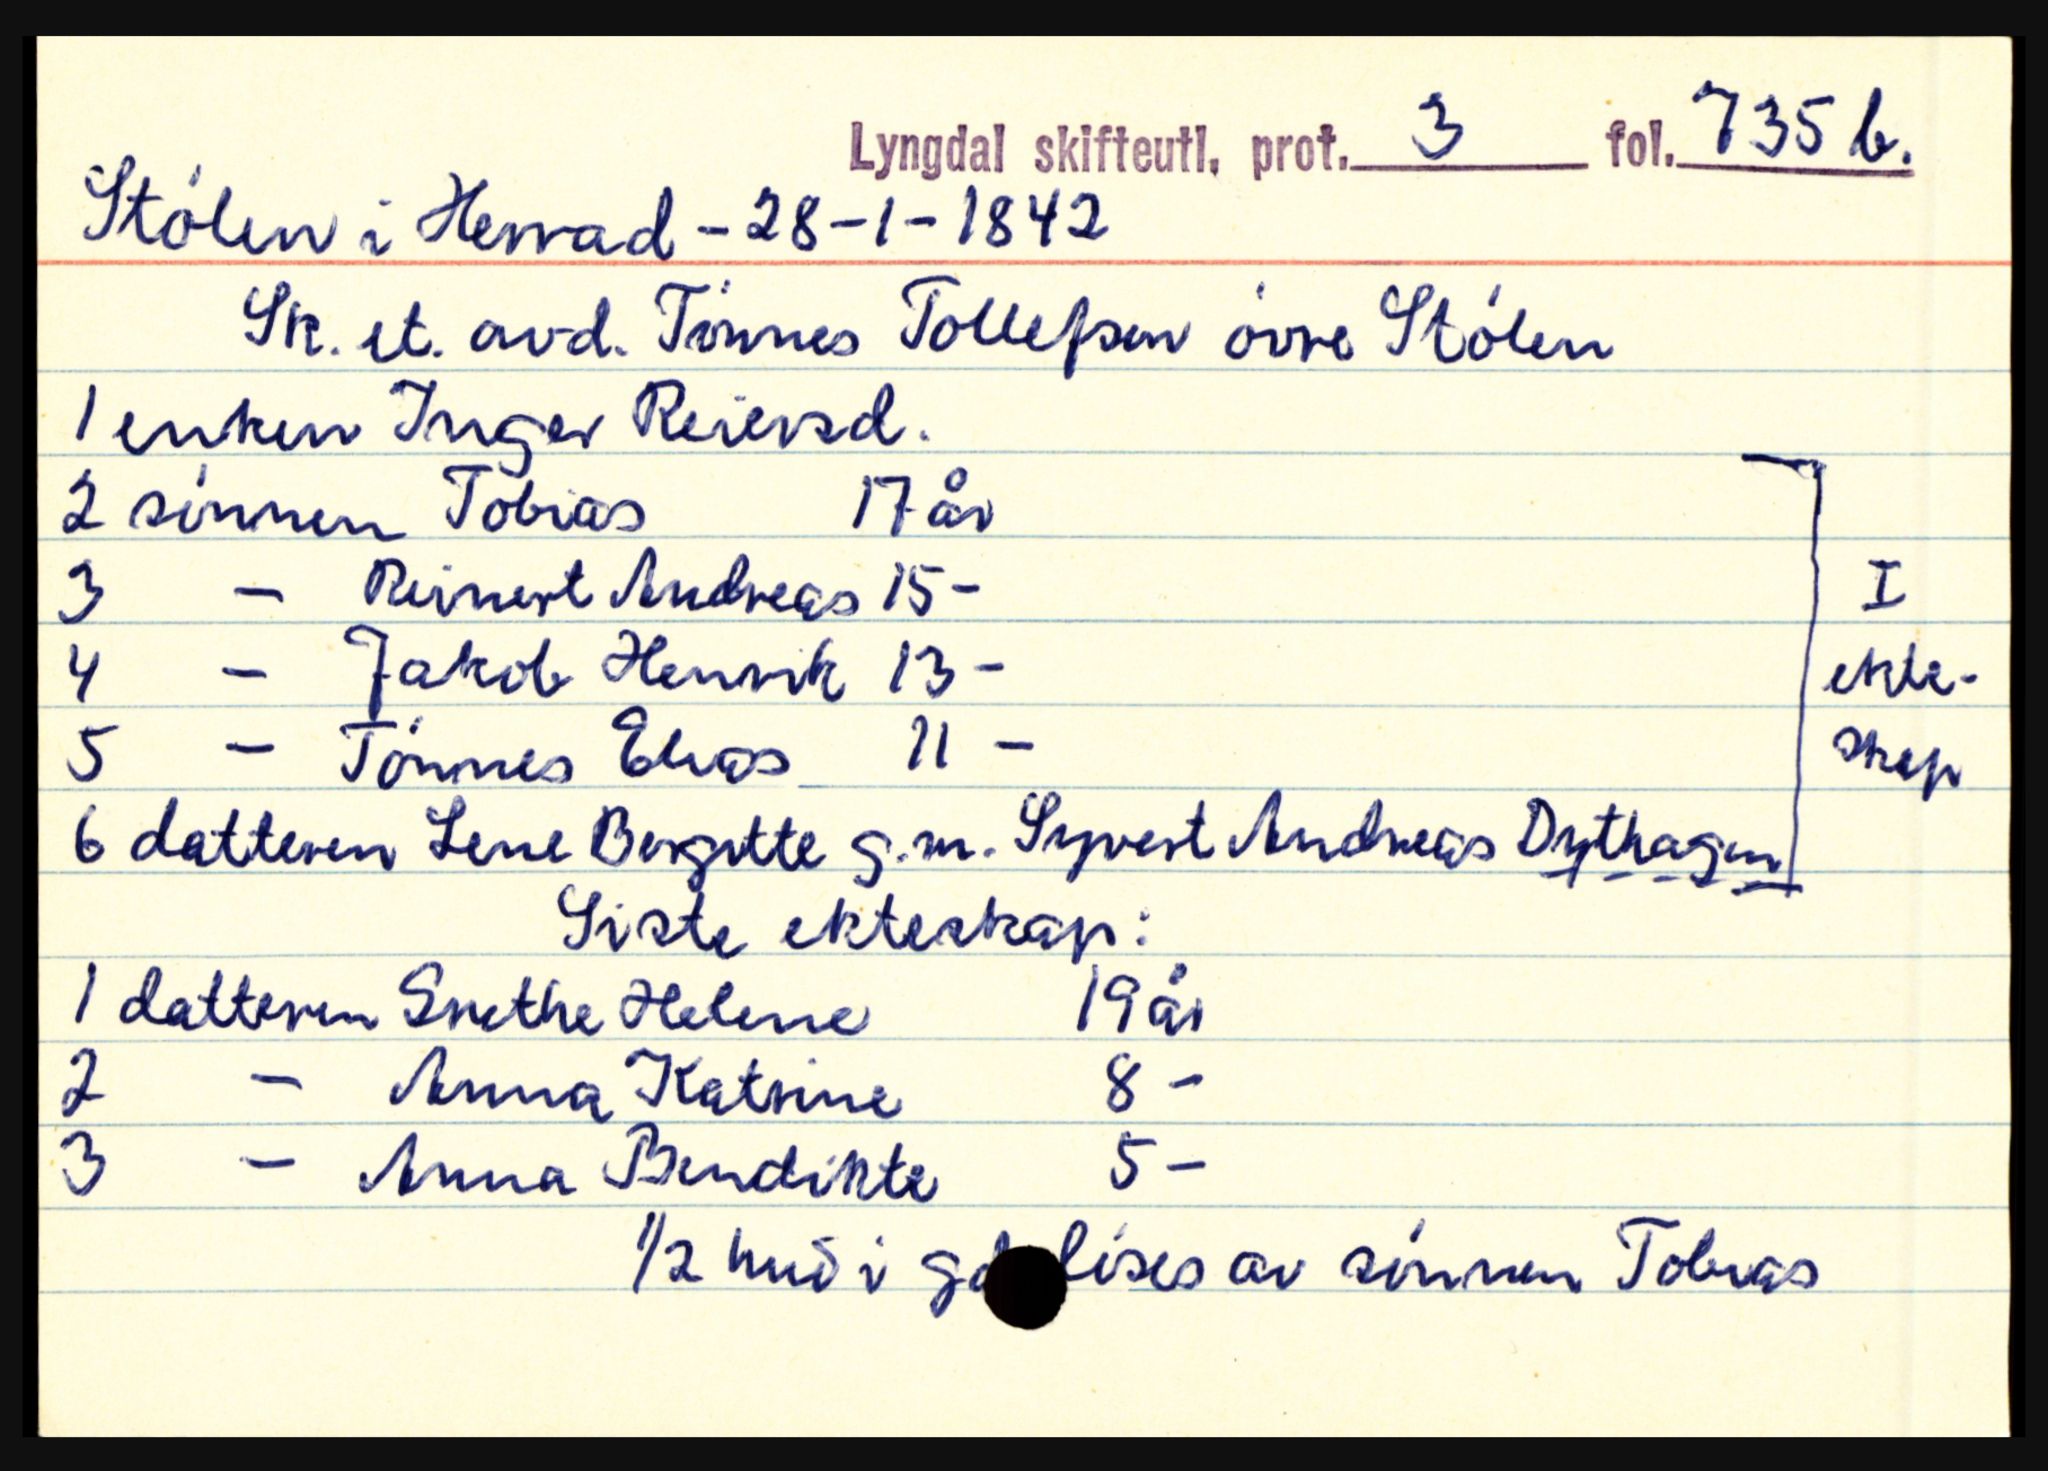 Lyngdal skifteutl. prot. 3 fol. 735 b.
Stólen i Herrad - 28-1-1842
Sk. et. avd. Tónnes Tollefsen óvre Stólen
1 enken Inger Reiersd.
2 sónnen Tobias 17 år
3 - Reinert Andreas 15 -
4 - Jakob Henrik 13 -
5 - Tónnes Elias 11 -
6 datteren Lene Bergitte g.m. Syvert Andreas Dythagen
I
ekte-
skap
Siste ekteskap:
1 datteren Grethe Helene 19 år
2 - Anna Katrine 8 -
3 - Anna Bendikte 5 -
1/2 hud i lóses av sónnen Tobias